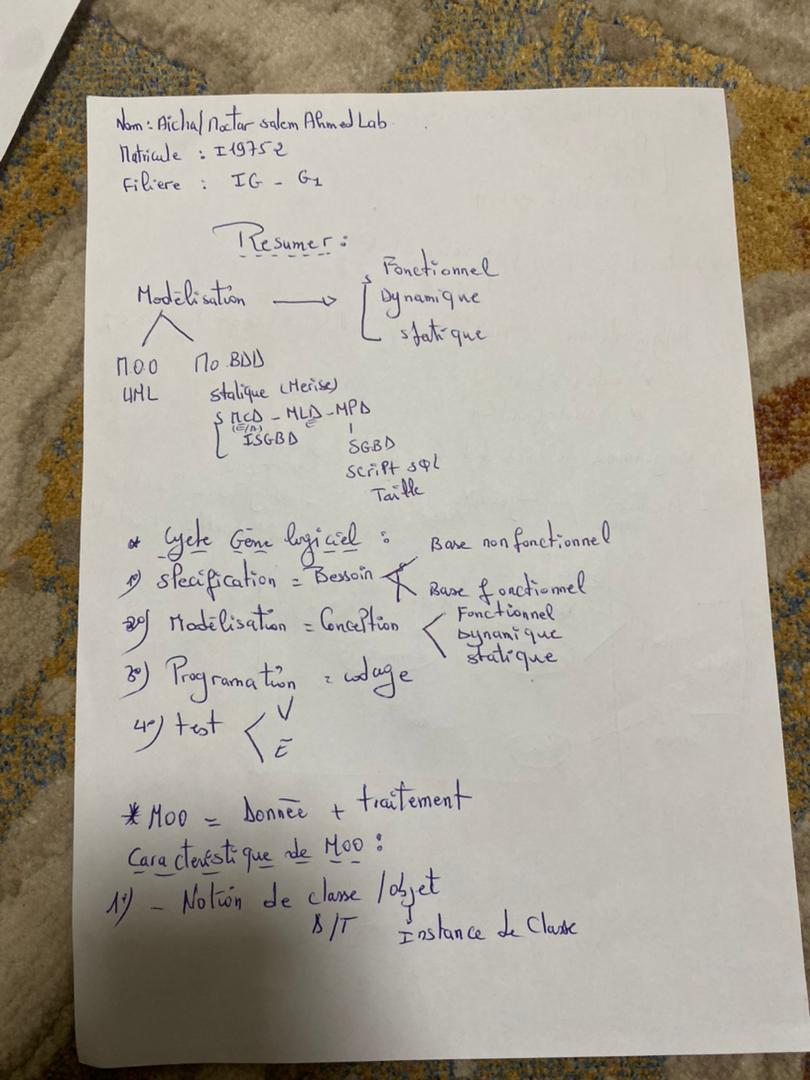 Nom : Aicha/Moctar salem Ahmed Lab
Matricule : I19752
Filiere : IG - G1
Resumer :
Modélisation → Fonctionnel
Dynamique
statique
MOO Mo BDD
UML statique (Merise)
MCD - MLD - MPD
(E/A) E
ISGBD SGBD
script sql
Taille
* Cycle Géne logiciel :
Base non fonctionnel
1°) Spécification = Bessoin
Base fonctionnel
2°) Modélisation = Conception
Fonctionnel
Dynamique
statique
3°) Programation = codage
4°) test
V
E
* MOO = Donnée + traitement
Caractéristique de MOO :
1°) - Notion de classe / objet
D/T Instance de Classe